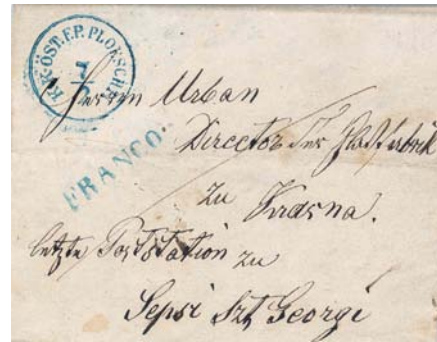 K.K. ÖST. F.P. PLOESCHT
7
5
Herrn Urban
Director der Glasfabrik
FRANCO.
zu Krasna.
letzte Poststation zu
Sepsi Szt Georgi